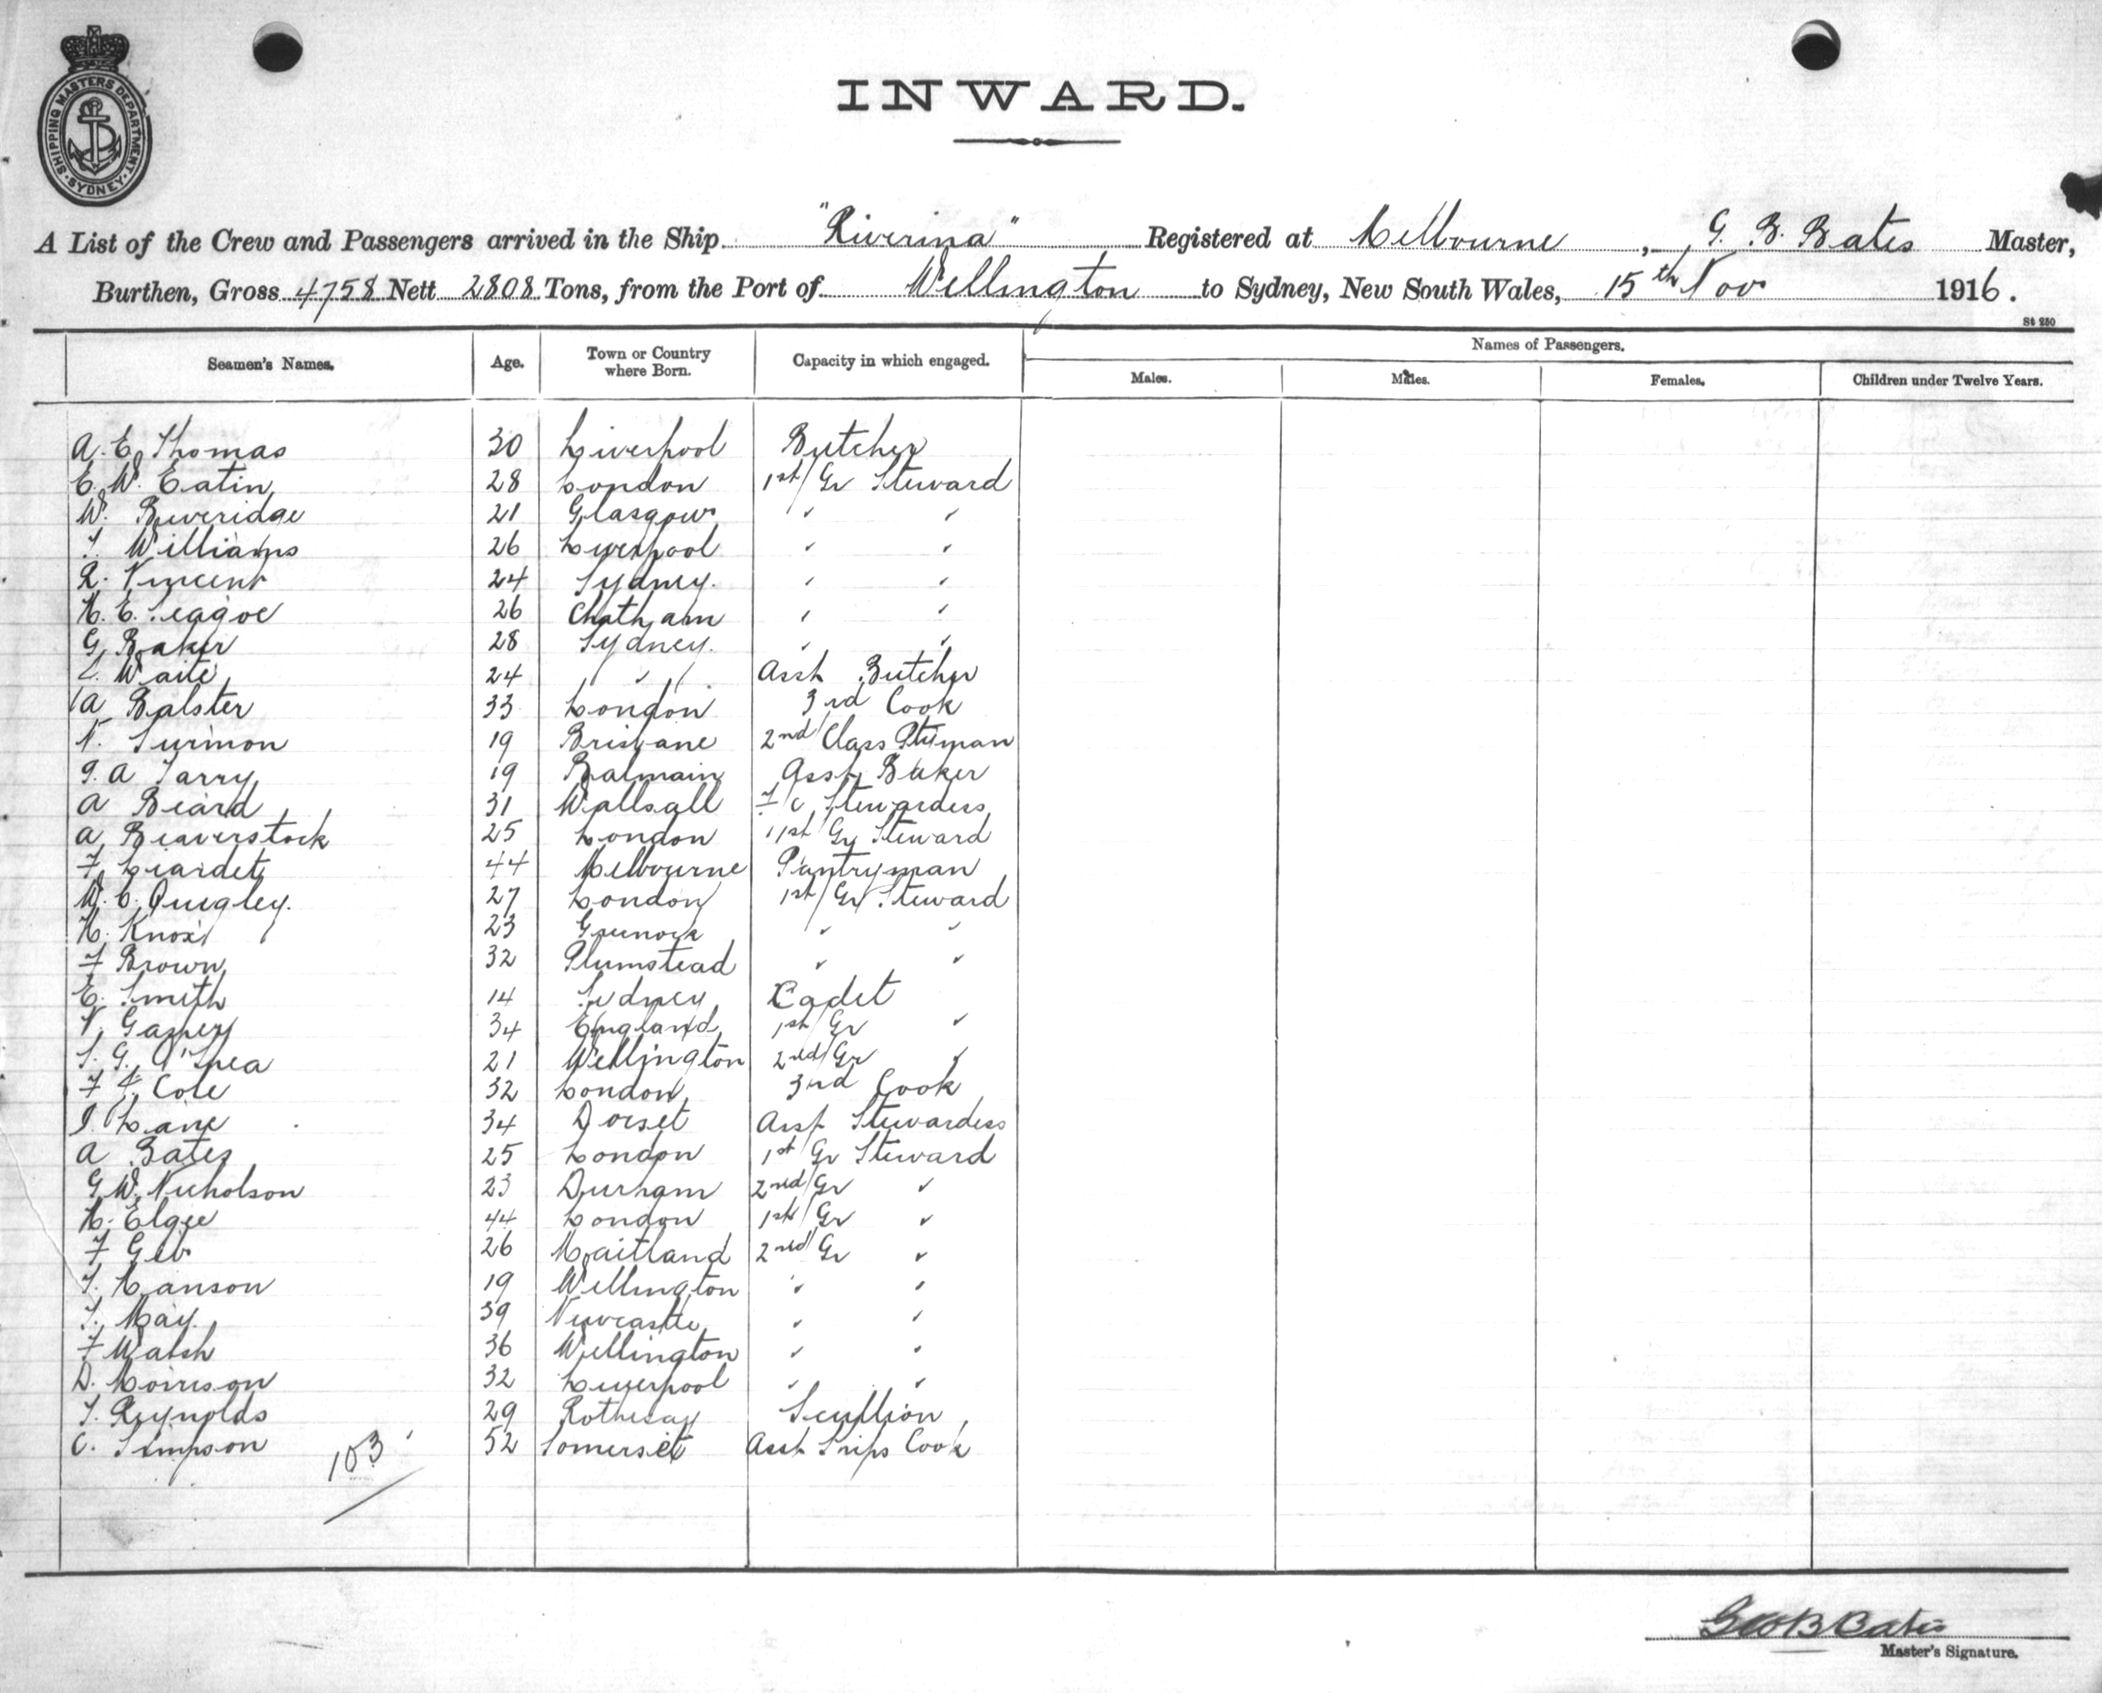 SHIPPING MASTERS DEPARTMENT. SYDNEY
INWARD.
A List of the Crew and Passengers arrived in the Ship "Riverina" Registered at Melbourne, G. B. Bates Master,
Burthen, Gross 4758 Nett 2808 Tons, from the Port of Wellington to Sydney, New South Wales, 15th Nov 1916.
St 250
Seamen's Names. Age. Town or Country where Born. Capacity in which engaged. Names of Passengers.
Males. Males. Females. Children under Twelve Years.
A. E. Thomas 30 Liverpool Butcher
E. W. Eatin 28 London 1st/Gr Steward
W. Beveridge 21 Glasgow " "
T. Williams 26 Liverpool " "
R. Vincent 24 Sydney. " "
H. E. Seagoe 26 Chatham " "
G Baker 28 Sydney. " "
Waite 24 " Asst Butcher
A Balster 33 London 3rd Cook
Surmon 19 Brisbane 2nd Class Ptryman
A Tarry 19 Balmain Asst Baker
A Beard 31 Wallsall F C Stewardess
A Beaverstock 25 London 1st Gr Steward
F Liardet 44 Melbourne Pantryman
W. C. Quigley. 27 London 1st/Gr Steward
H. Knox 23 Greenock " "
F Brown 32 Plumstead " "
E. Smith 14 Sydney Cadet
V. Gasper 34 England 1st/Gr "
G. O'Shea 21 Wellington 2nd/Gr "
F Cole 32 London 3rd Cook
Lane 34 Dorset Asst Stewardess
A Bates 25 London 1st Gr Steward
G W. Nicholson 23 Durham 2nd/Gr "
H. Elgee 44 London 1st/Gr "
F Geb 26 Maitland 2nd/Gr "
T. Hanson 19 Wellington " "
T. May. 39 Newcastle " "
F Walsh 36 Wellington " "
D. Morrison 32 Liverpool " "
T. Reynolds 29 Rothesay Scullion
C. Simpson 52 Somerset Asst Ships Cook
103
Geo B Bates
Master's Signature.